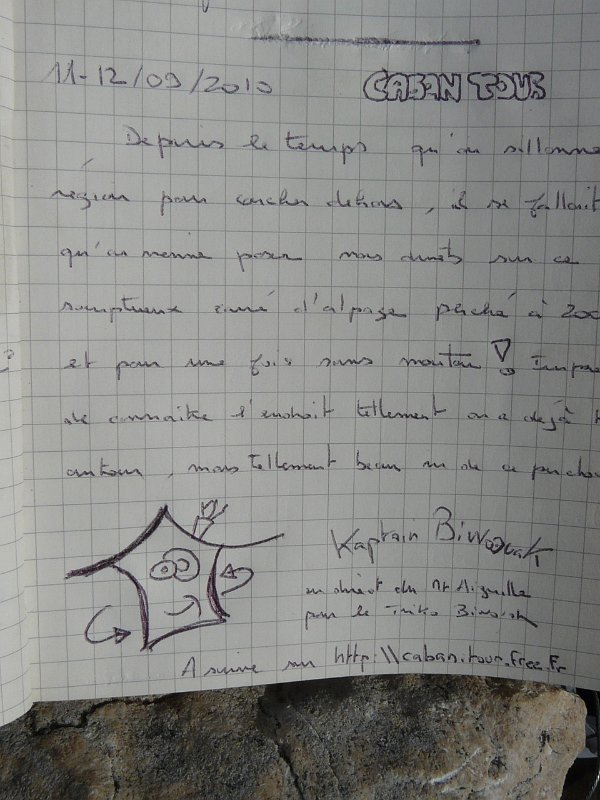 11-12/09/2010 CABAN TOUR
Depuis le temps qu'on sillonne
région pour coucher dehors, il se fallait
qu'on vienne poser nos duvets sur ce
somptueux d'alpage perché à 200
et pour une fois sans mouton !
de connaitre l'endroit tellement on a dejà
autour, mais tellement beau vu de ce perchoir
Kaptain Biwouak
en direct du Mt Aiguille
pour le Biwouak
A suivre sur http:\\caban.tour.free.fr